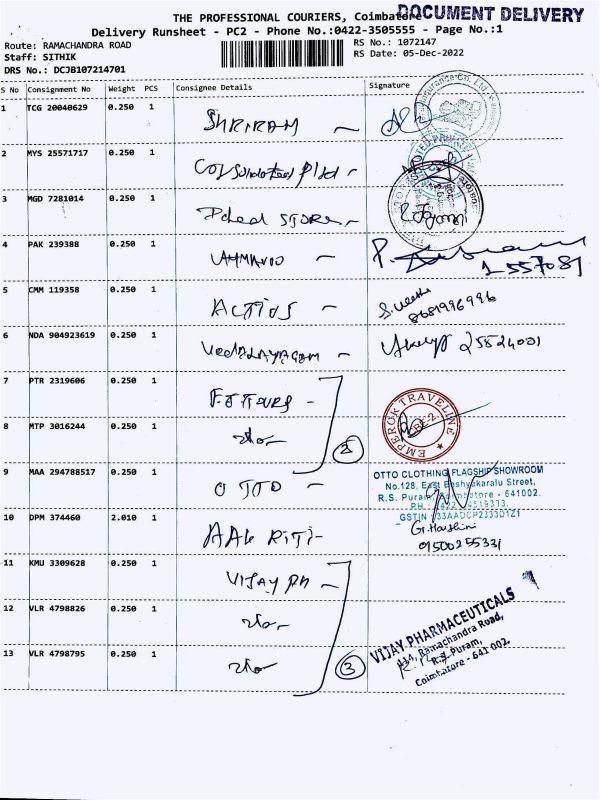 THE PROFESSIONAL COURIERS, Coimbatore
DOCUMENT DELIVERY
Delivery Runsheet - PC2 - Phone No.:0422-3505555 - Page No.:1
Route: RAMACHANDRA ROAD
RS No.: 1072147
Staff: SITHIK
RS Date: 05-Dec-2022
DRS No.: DCJB107214701
S No Consignment No Weight PCS Consignee Details Signature
1 TCG 20040629 0.250 1 SHRIRAM
2 MYS 25571717 0.250 1 Consolidated
3 MGD 7281014 0.250 1 STORE
4 PAK 239388 0.250 1
1557081
5 CMM 119358 0.250 1 ACTIOS
8681996996
6 NDA 904923619 0.250 1 Vedalayagam 25824001
7 PTR 2319606 0.250 1
EMPEROR TRAVELINE
CBE-2
8 MTP 3016244 0.250 1
2
9 MAA 294788517 0.250 1 OTTO
OTTO CLOTHING FLAGSHIP SHOWROOM
No.128, East Bashyakaralu Street,
R.S. Puram, Coimbatore - 641002.
PH : 0422 4519333.
GSTIN : 33AADCP2333D1Z1
10 DPM 374460 2.010 1
G. Harshini
11 KMU 3309628 0.250 1 VIJAY PH
12 VLR 4798826 0.250 1
13 VLR 4798795 0.250 1
3
VIJAY PHARMACEUTICALS
Ramachandra Road,
R.S. Puram,
Coimbatore - 641 002.